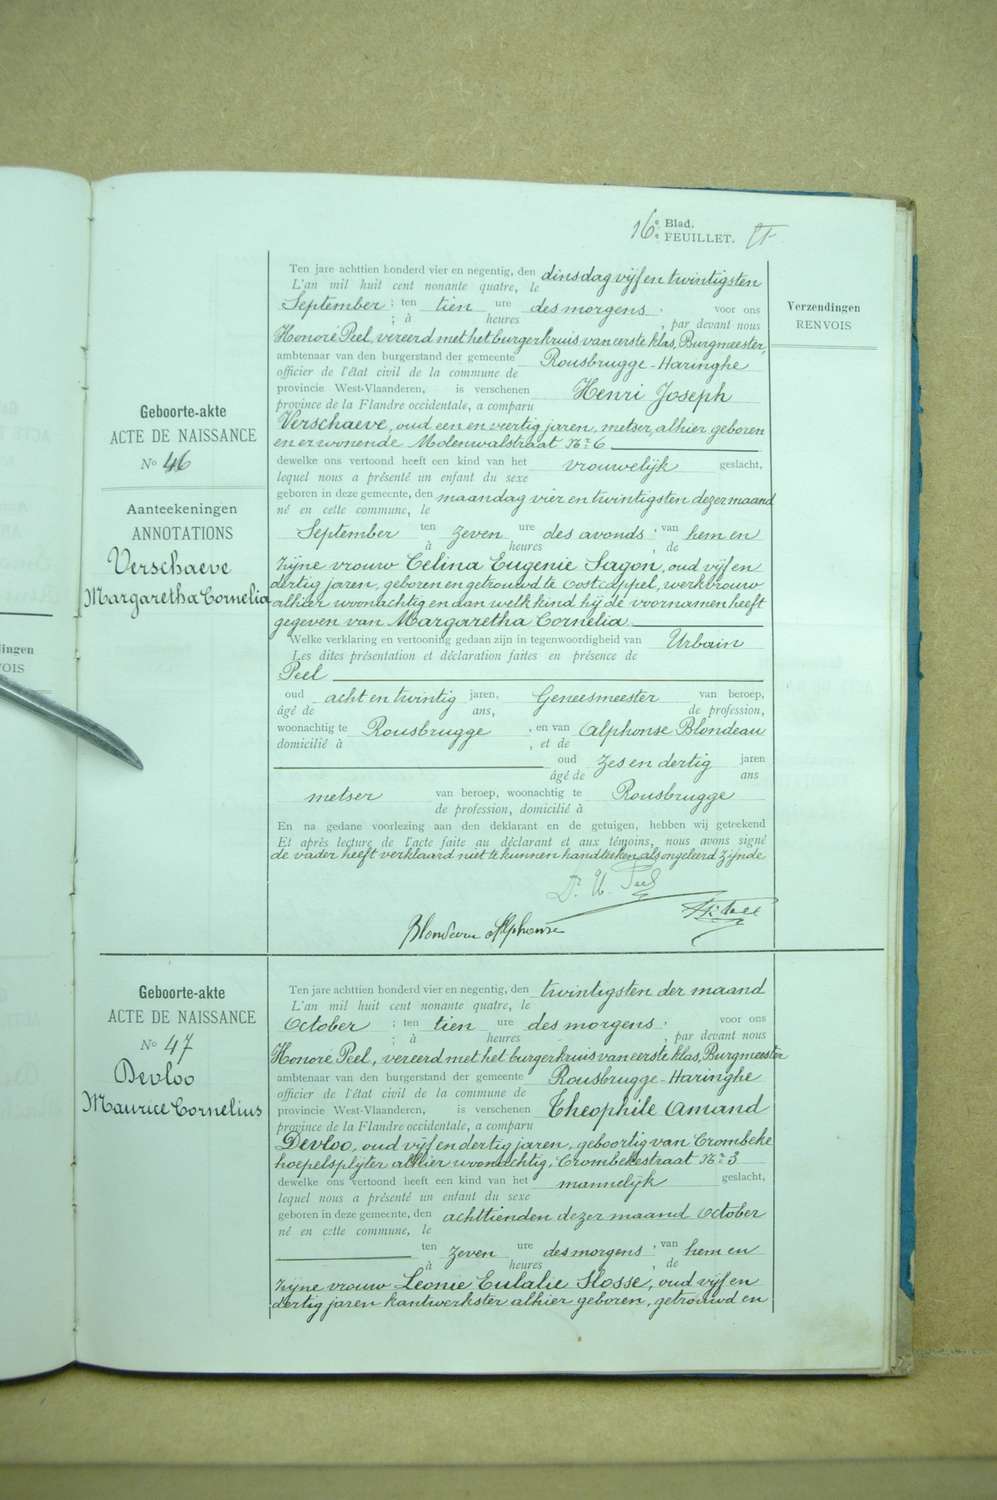 16e Blad.
e FEUILLET.
Ten jare achttien honderd vier en negentig, den dinsdag vijf en twintigsten
L'an mil huit cent nonante quatre, le
September ; ten tien ure des morgens . voor ons
; à heures , par devant nous
Honoré Peel, vereerd met het burgerkruis van eerste klas, Burgmeester,
ambtenaar van den burgerstand der gemeente Rousbrugge-Haringhe
officier de l'état civil de la commune de
provincie West-Vlaanderen, is verschenen Henri Joseph
province de la Flandre occidentale, a comparu
Verschaeve, oud een en veertig jaren, metser, alhier geboren
en er wonende Molenwalstraat No 6
dewelke ons vertoond heeft een kind van het vrouwelijk geslacht,
lequel nous a présenté un enfant du sexe
geboren in deze gemeente, den maandag vier en twintigsten dezer maand
né en cette commune, le
September ten zeven ure des avonds ; van hem en
à heures , de
zijne vrouw Celina Eugenie Sagon, oud vijf en
dertig jaren, geboren en getrouwd te Oostcappel, werkvrouw
alhier woonachtig en aan welk kind hij de voornamen heeft
gegeven van Margaretha Cornelia
Welke verklaring en vertooning gedaan zijn in tegenwoordigheid van Urbain
Les dites présentation et déclaration faites en présence de
Peel
oud acht en twintig jaren, Geneesmeester van beroep,
âgé de ans, de profession,
woonachtig te Rousbrugge , en van Alphonse Blondeau
domicilié à , et de
oud zes en dertig jaren
âgé de ans
metser van beroep, woonachtig te Rousbrugge
de profession, domicilié à
En na gedane voorlezing aan den deklarant en de getuigen, hebben wij geteekend
Et après lecture de l'acte faite au déclarant et aux témoins, nous avons signé
de vader heeft verklaard niet te kunnen handteeken als ongeleerd zijnde
Dr. U. Peel
Blondeau Alphonse
Verzendingen
RENVOIS
Geboorte-akte
ACTE DE NAISSANCE
No 46
Aanteekeningen
ANNOTATIONS
Verschaeve
Margaretha Cornelia
Geboorte-akte
ACTE DE NAISSANCE
No 47
Devloo
Maurice Cornelius
Ten jare achttien honderd vier en negentig, den twintigsten der maand
L'an mil huit cent nonante quatre, le
October ; ten tien ure des morgens ; voor ons
; à heures , par devant nous
Honoré Peel, vereerd met het burgerkruis van eerste klas, Burgmeester
ambtenaar van den burgerstand der gemeente Rousbrugge-Haringhe
officier de l'état civil de la commune de
provincie West-Vlaanderen, is verschenen Theophile Amand
province de la Flandre occidentale, a comparu
Devloo, oud vijf en dertig jaren, geboortig van Crombeke
hoepelsplijter alhier woonachtig, Crombekestraat No 3
dewelke ons vertoond heeft een kind van het mannelijk geslacht,
lequel nous a présenté un enfant du sexe
geboren in deze gemeente, den achttienden dezer maand October
né en cette commune, le
ten zeven ure des morgens ; van hem en
à heures , de
zijne vrouw Leonie Eulalie Slosse, oud vijf en
dertig jaren kantwerkster alhier geboren, getrouwd en